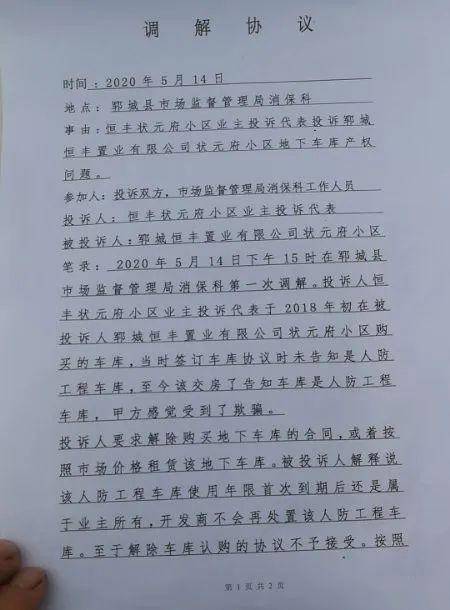 调解协议
时间：2020年5月14日
地点：郓城县市场监督管理局消保科
事由：恒丰状元府小区业主投诉代表投诉郓城
恒丰置业有限公司状元府小区地下车库产权
问题。
参加人：投诉双方，市场监督管理局消保科工作人员
投诉人：恒丰状元府小区业主投诉代表
被投诉人：郓城恒丰置业有限公司状元府小区
笔录：2020年5月14日下午15时在郓城县
市场监督管理局消保科第一次调解。投诉人恒
丰状元府小区业主投诉代表于2018年初在被
投诉人郓城恒丰置业有限公司状元府小区购
买的车库，当时签订车库协议时未告知是人防
工程车库，至今该交房了告知车库是人防工程
车库，甲方感觉受到了欺骗。
投诉人要求解除购买地下车库的合同，或着按
照市场价格租赁该地下车库。被投诉人解释说
该人防工程车库使用年限首次到期后还是属
于业主所有，开发商不会再处置该人防工程车
库。至于解除车库认购的协议不予接受。按照
第1页共2页